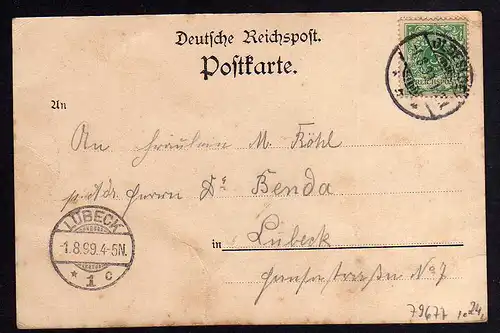 Deutsche Reichspost.
Postkarte.
An
An Fräulein M. Köhl
p. Adr. Herrn Dr Benda
in Lübeck
Hansastraße No 7
LÜBECK
-1.8.99.4-5N.
* 1 c
79677